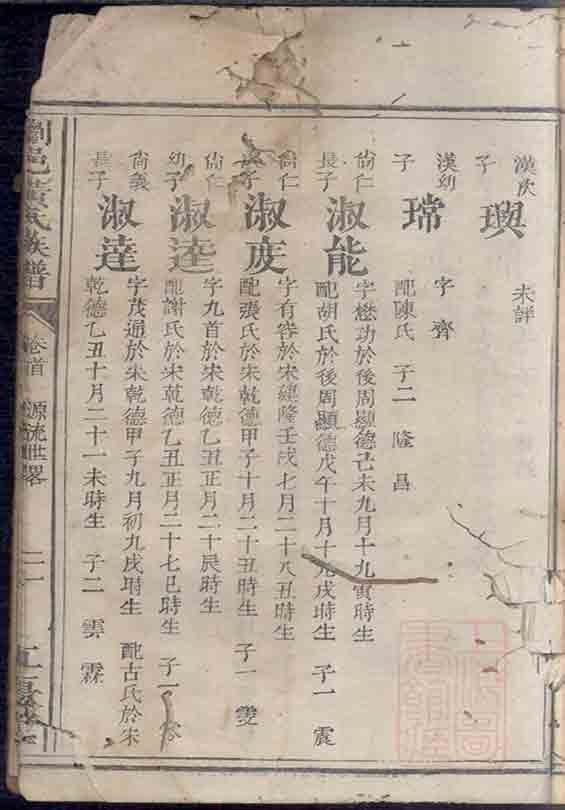 漢次
子
璵
未詳
漢幼
子
瑺
字齊
配陳氏 子二 隆 昌
尙仁
長子
淑能
字懋功於後周顯德己未九月十九寅時生
配胡氏於後周顯德戊午十月十九戌時生 子一 震
尙仁
長子
淑度
字有容於宋建隆壬戌七月二十八丑時生
配張氏於宋乾德甲子十月二十丑時生 子一 雙
尙仁
幼子
淑逵
字九首於宋乾德乙丑正月二十辰時生
配謝氏於宋乾德乙丑正月二十七巳時生 子一
尙義
長子
淑達
字茂通於宋乾德甲子九月初九戌時生 配古氏於宋
乾德乙丑十月二十一未時生 子二 雲 霖
瀏邑黃氏族譜
卷首 源流世畧
二
江夏堂